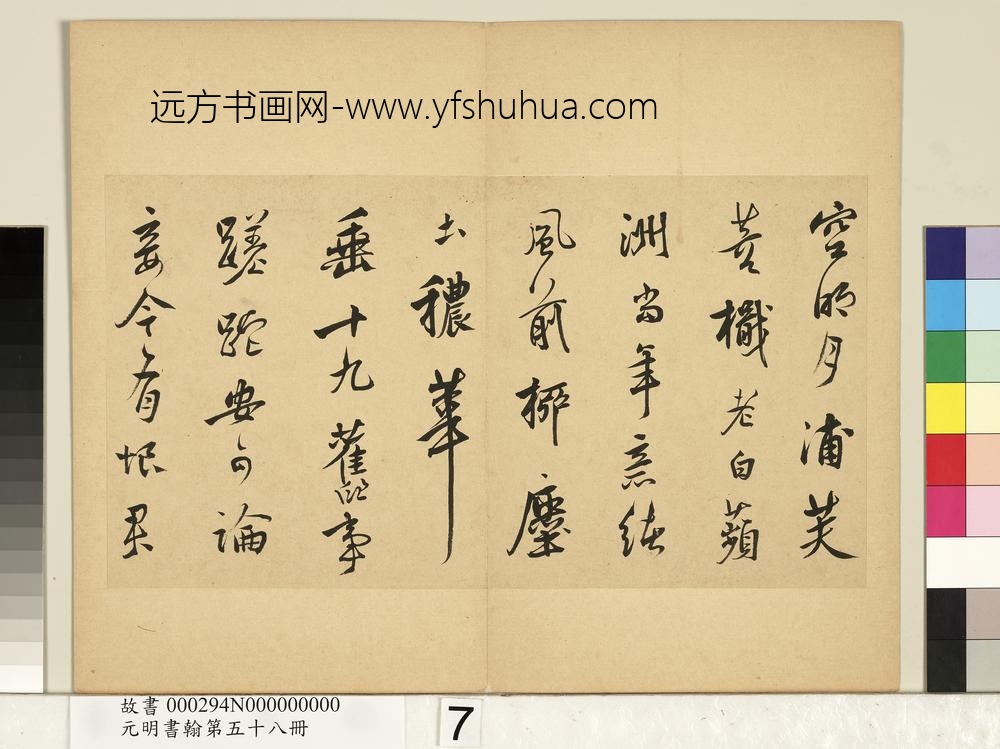 远方书画网-www.yfshuhua.com
空明月浦芙
蓉檝老白蘋
洲當年意緒
風前柳塵
土穠華
垂十九舊事
蹉跎安可論
妾今有恨君
故書 000294N000000000
元明書翰第五十八冊
7